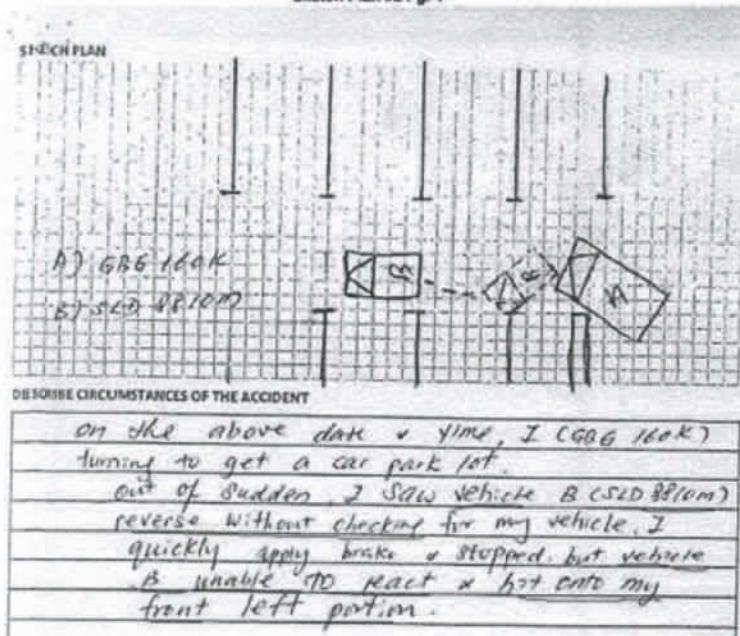 SKETCH PLAN
A) GBG 160K
B) SLD 8810M
B
B
A
DESCRIBE CIRCUMSTANCES OF THE ACCIDENT
on the above date & time, I (GBG 160K)
turning to get a car park lot.
out of sudden, I saw vehicle B (SLD 8810m)
reverse without checking for my vehicle. I
quickly apply brake & stopped. but vehicle
B unable to react & hit onto my
front left portion.